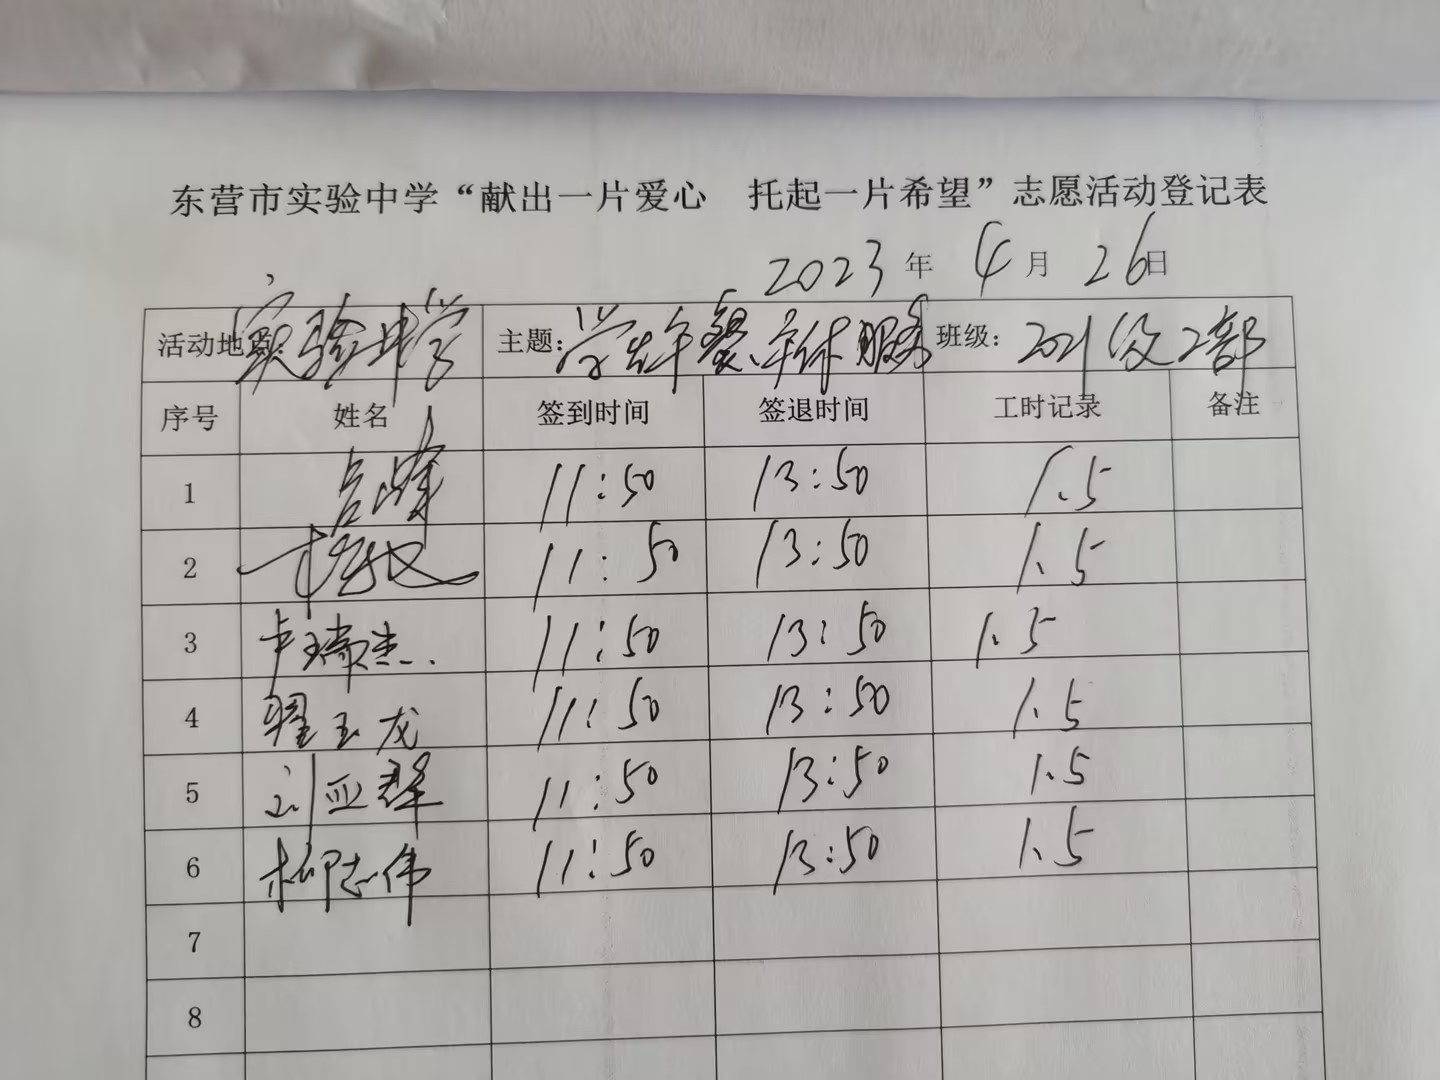 东营市实验中学“献出一片爱心 托起一片希望”志愿活动登记表
2023年 4月 26日
活动地点: 实验中学 主题: 学生午餐、午休服务 班级: 2021级2部
序号 姓名 签到时间 签退时间 工时记录 备注
1 吕峰 11:50 13:50 1.5
2 11:50 13:50 1.5
3 卢瑞杰 11:50 13:50 1.5
4 翟玉龙 11:50 13:50 1.5
5 刘亚群 11:50 13:50 1.5
6 柳志伟 11:50 13:50 1.5
7
8